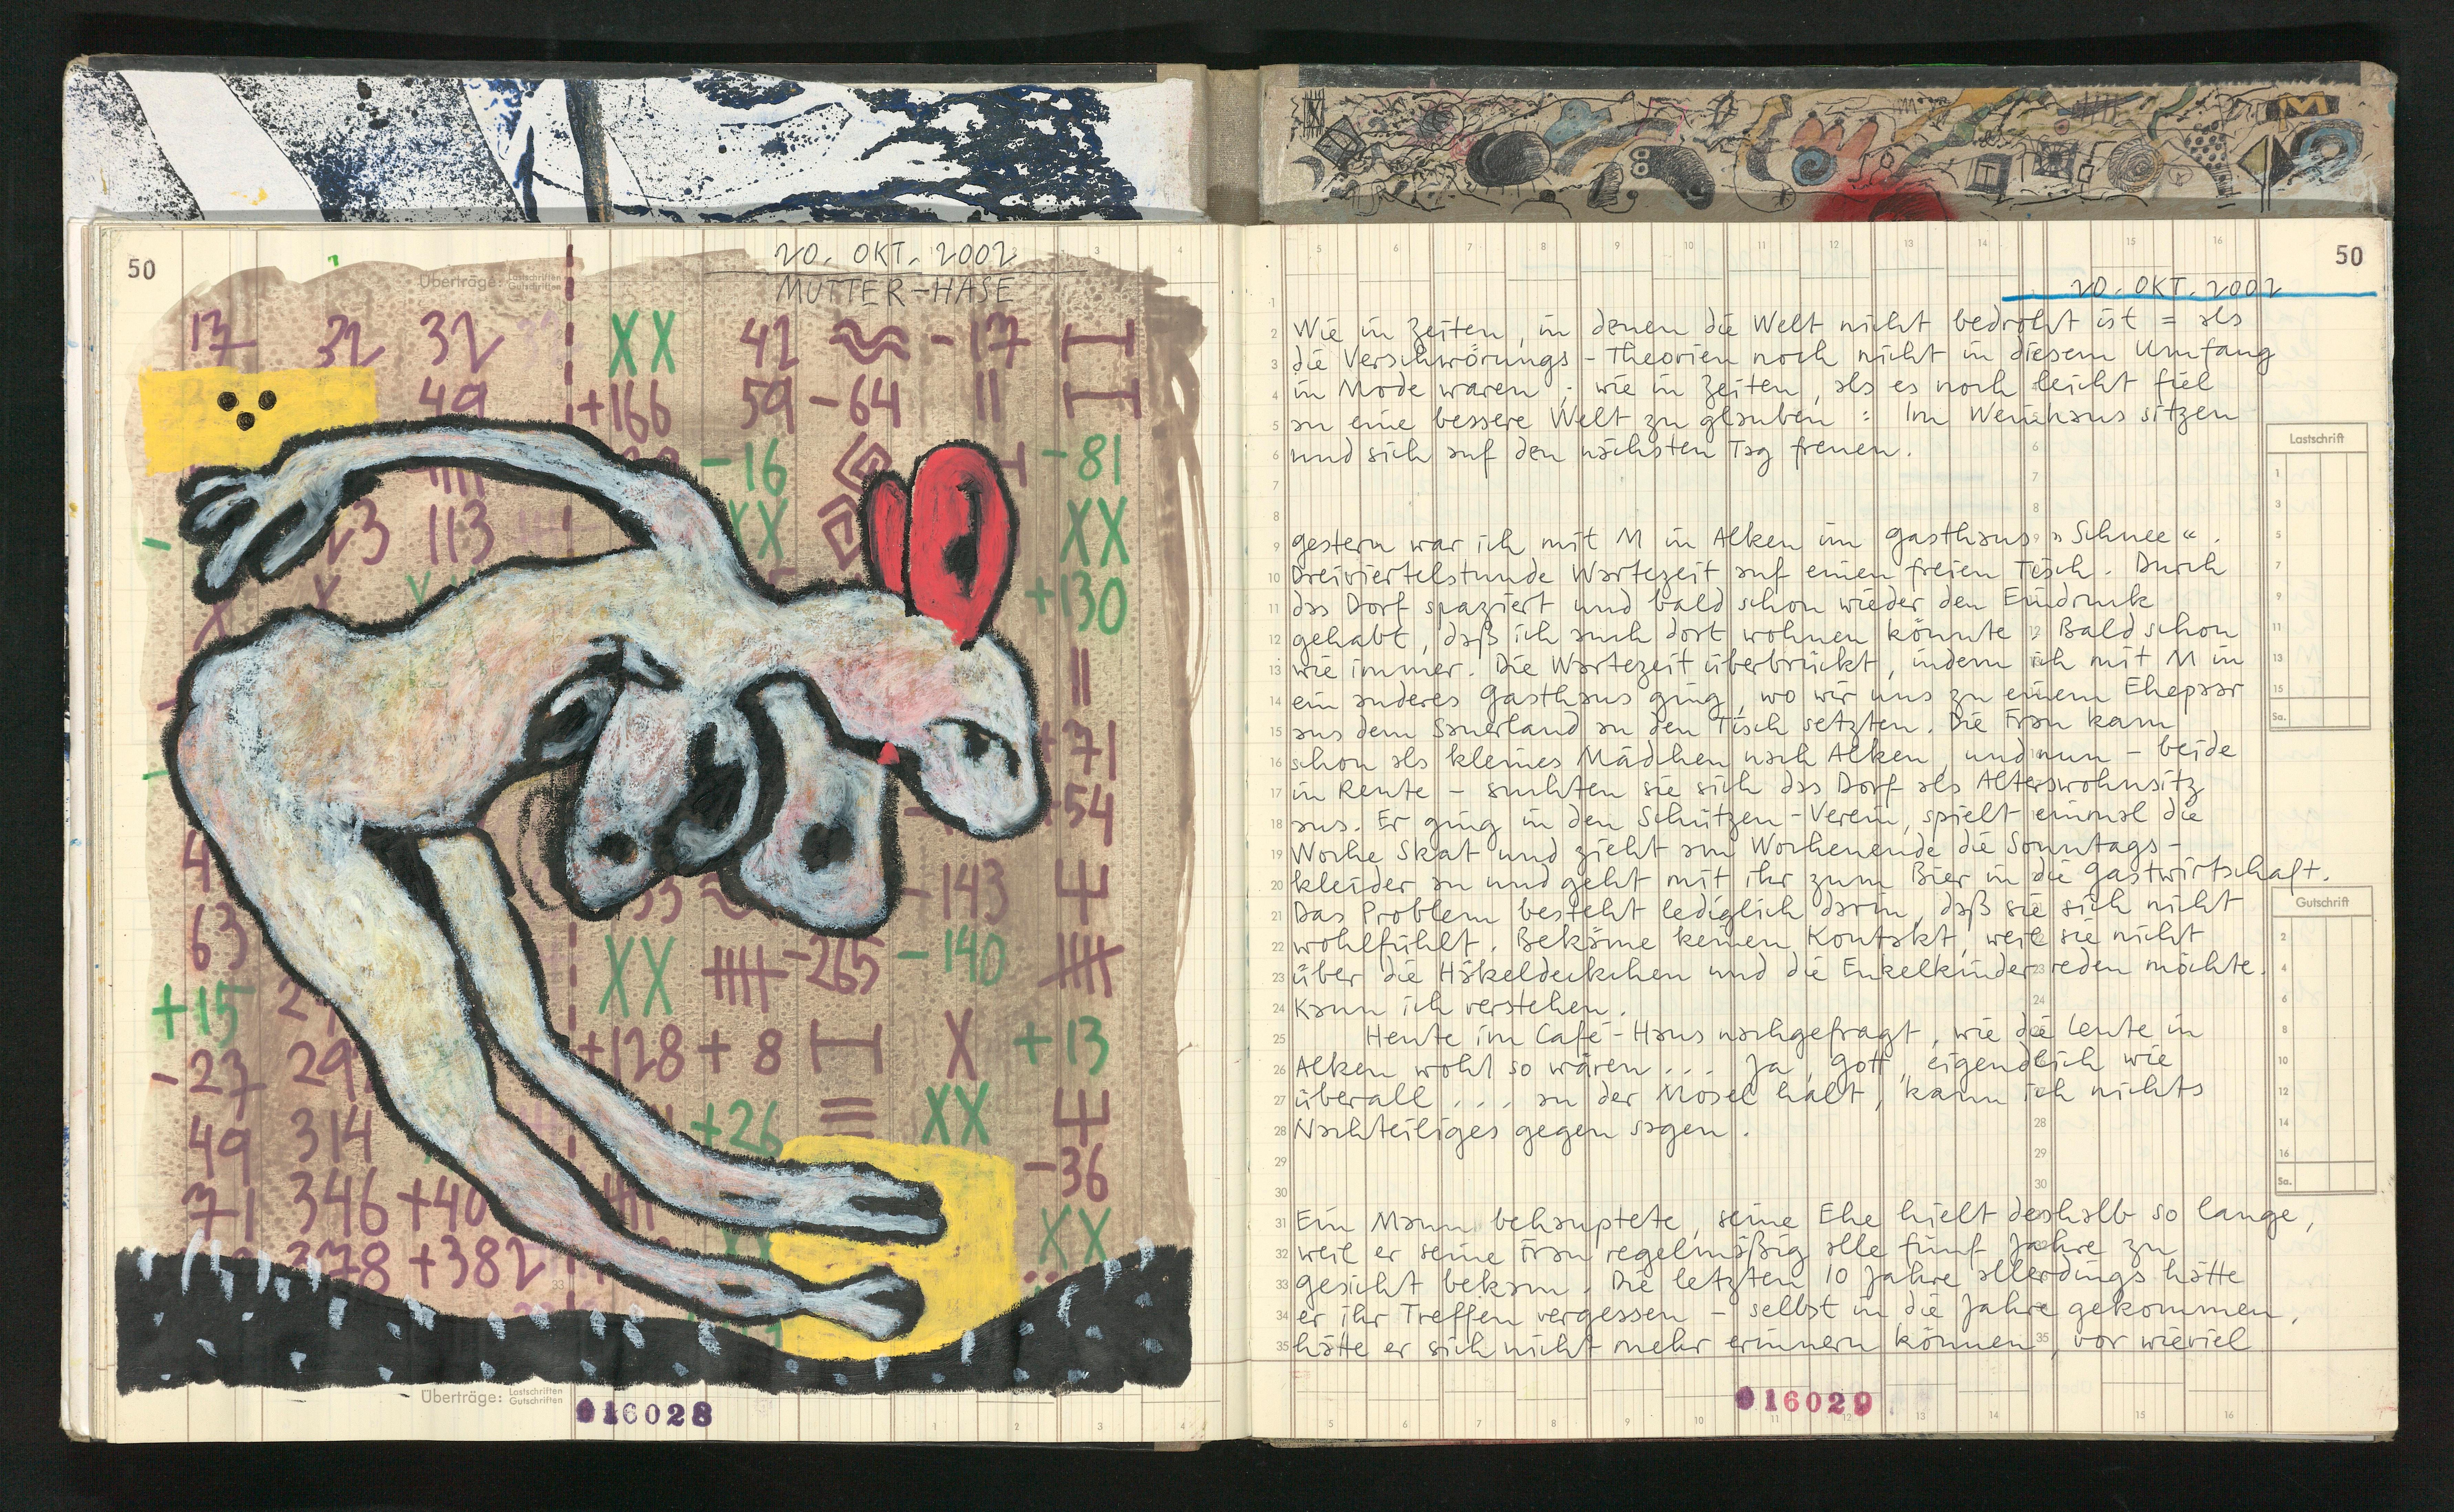 50
20. OKT. 2002
MUTTER-HASE
Überträge: Lastschriften Gutschriften
1 2 3 4
17 32 32 XX 42 -17
49 +166 59 -64 ||
-16 -81
113 XX XX
+130
||
+71
54
-143
63 XX -265 -140
+15
-27 +128 + 8 X +13
49 314 +26 XX
-36
71 346 +40 XX
378 +382
33
Überträge: Lastschriften Gutschriften
016028
1 2 3 4
5 6 7 8 9 10 11 12 13 14 15 16
50
20. OKT. 2002
Wie in Zeiten, in denen die Welt nicht bedroht ist = als
die Verschwörungs-Theorien noch nicht in diesem Umfang
in Mode waren ; wie in Zeiten, als es noch leicht fiel
an eine bessere Welt zu glauben : Im Weinhaus sitzen
und sich auf den nächsten Tag freuen.
gestern war ich mit M in Alken im Gasthaus "Schnee".
Dreiviertelstunde Wartezeit auf einen freien Tisch. Durch
das Dorf spaziert und bald schon wieder den Eindruck
gehabt, daß ich auch dort wohnen könnte. Bald schon
wie immer. Die Wartezeit überbrückt, indem ich mit M in
ein anderes Gasthaus ging, wo wir uns zu einem Ehepaar
aus dem Sauerland an den Tisch setzten. Die Frau kam
schon als kleines Mädchen nach Alken, und nun – beide
in Rente – suchten sie sich das Dorf als Alterswohnsitz
aus. Er ging in den Schützen-Verein, spielt einmal die
Woche Skat und zieht am Wochenende die Sonntags-
kleider an und geht mit ihr zum Bier in die Gastwirtschaft.
Das Problem besteht lediglich darin, daß sie sich nicht
wohlfühlt. Bekäme keinen Kontakt, weil sie nicht
über die Häkeldeckchen und die Enkelkinder reden möchte.
Kann ich verstehen.
Heute im Café-Haus nachgefragt, wie die Leute in
Alken wohl so wären ... Ja, Gott, eigendlich wie
überall ... an der Mosel halt, kann ich nichts
Nachteiliges gegen sagen.
Ein Mann behauptete, seine Ehe hielt deshalb so lange,
weil er seine Frau regelmäßig alle fünf Jahre zu
gesicht bekam. Die letzten 10 Jahre allerdings hätte
er ihr Treffen vergessen – selbst in die Jahre gekommen,
hätte er sich nicht mehr erinnern können, vor wieviel
Lastschrift
1
3
5
7
9
11
13
15
Sa.
Gutschrift
2
4
6
8
10
12
14
16
Sa.
016029
5 6 7 8 9 10 11 12 13 14 15 16